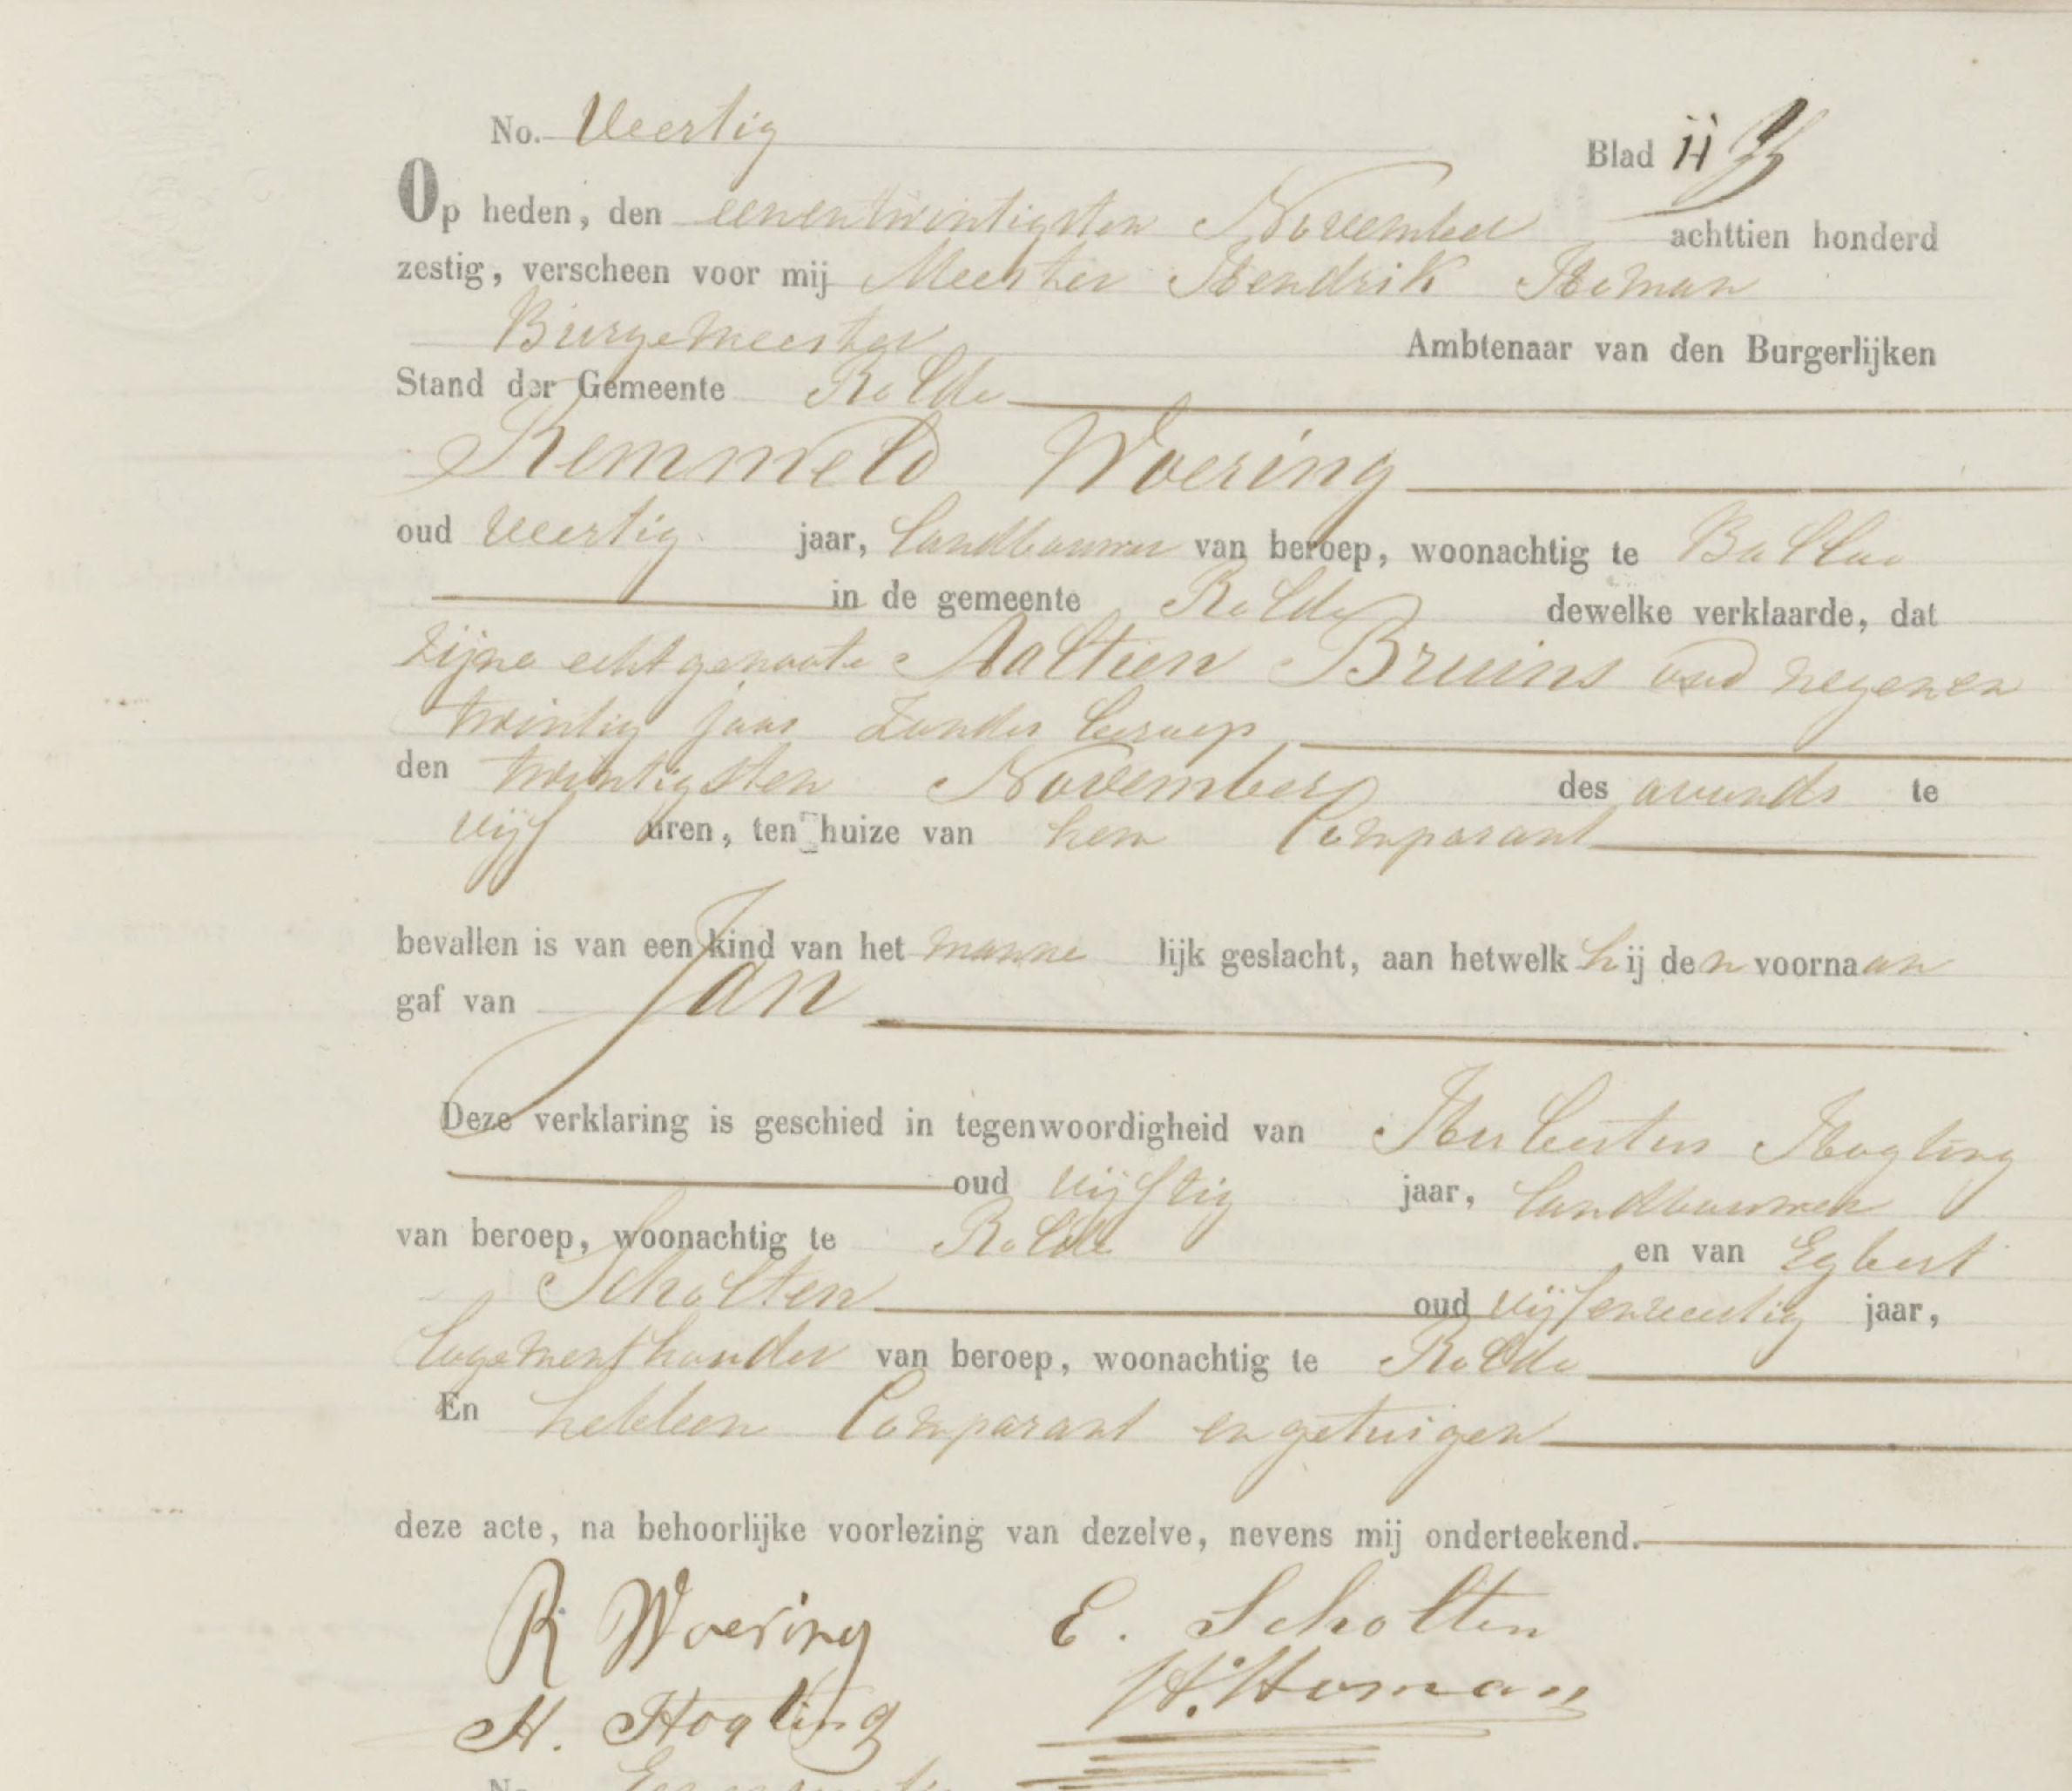 No. Veertig
Blad 11
Op heden, den eenentwintigsten November achttien honderd
zestig, verscheen voor mij Meester Hendrik Homan
Burgemeester Ambtenaar van den Burgerlijken
Stand der Gemeente Rolde
Remmelt Woering
oud veertig jaar, landbouwer van beroep, woonachtig te Balloo
in de gemeente Rolde dewelke verklaarde, dat
zijne echtgenoote Aaltien Bruins oud negenen
twintig jaar zonder beroep
den twintigsten November des avonds te
vijf uren, ten huize van hem Comparant
bevallen is van een kind van het manne lijk geslacht, aan hetwelk hij den voornaam
gaf van Jan
Deze verklaring is geschied in tegenwoordigheid van Huibertus Hogting
oud vijftig jaar, landbouwer
van beroep, woonachtig te Rolde en van Egbert
Scholten oud vijfenveertig jaar,
logementhouder van beroep, woonachtig te Rolde
En hebben Comparant en getuigen
deze acte, na behoorlijke voorlezing van dezelve, nevens mij onderteekend.
R Woering E. Scholten
H. Hogting H. Homan
No.